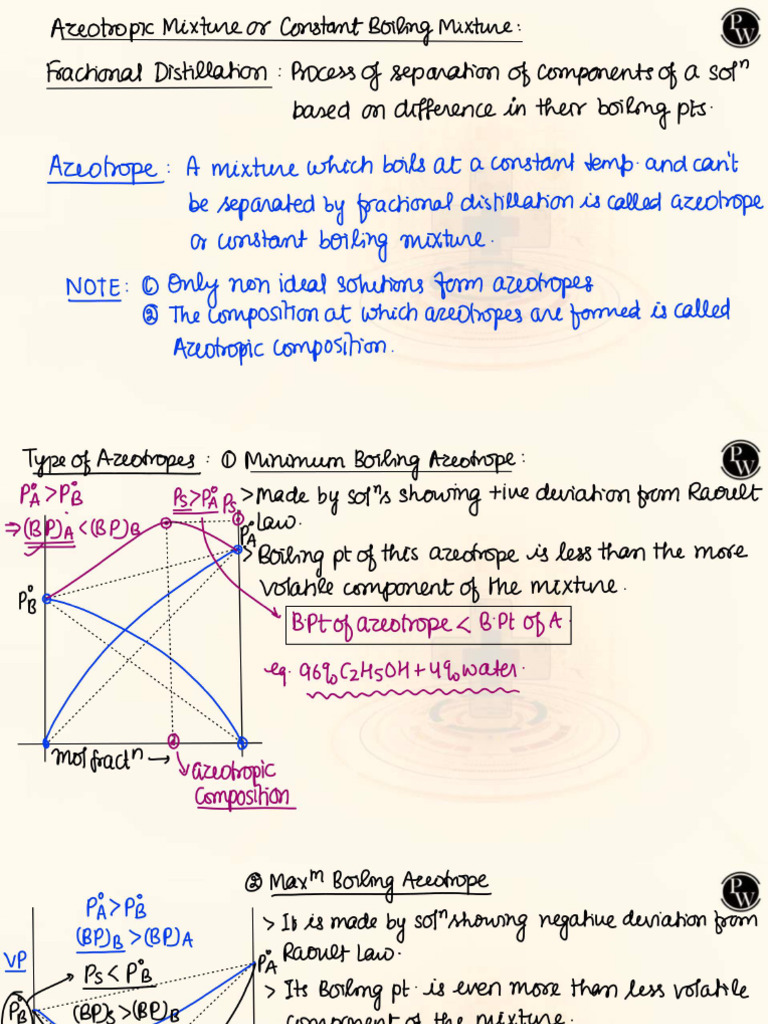 Azeotropic Mixture or Constant Boiling Mixture:
PW
Fractional Distillation : Process of separation of components of a solⁿ
based on difference in their boiling pts.
Azeotrope : A mixture which boils at a constant temp. and can't
be separated by fractional distillation is called azeotrope
or constant boiling mixture.
NOTE: ① Only non ideal solutions form azeotropes
② The composition at which azeotropes are formed is called
Azeotropic composition.
Type of Azeotropes : ① Minimum Boiling Azeotrope :
PW
P°A > P°B
⇒ (BP)A < (BP)B
Ps > P°A
Ps
P°A
P°B
> made by solⁿs showing +ive deviation from Raoult
Law.
> Boiling pt of this azeotrope is less than the more
volatile component of the mixture.
B.Pt of azeotrope < B.Pt of A
eg. 96% C2H5OH + 4% water.
mol fractⁿ →
azeotropic
composition
② Maxᵐ Boiling Azeotrope
PW
P°A > P°B
(BP)B > (BP)A
VP
Ps < P°B
(BP)s > (BP)B
P°A
P°B
> It is made by solⁿ showing negative deviation from
Raoult Law.
> Its Boiling pt. is even more than less volatile
component of the mixture.